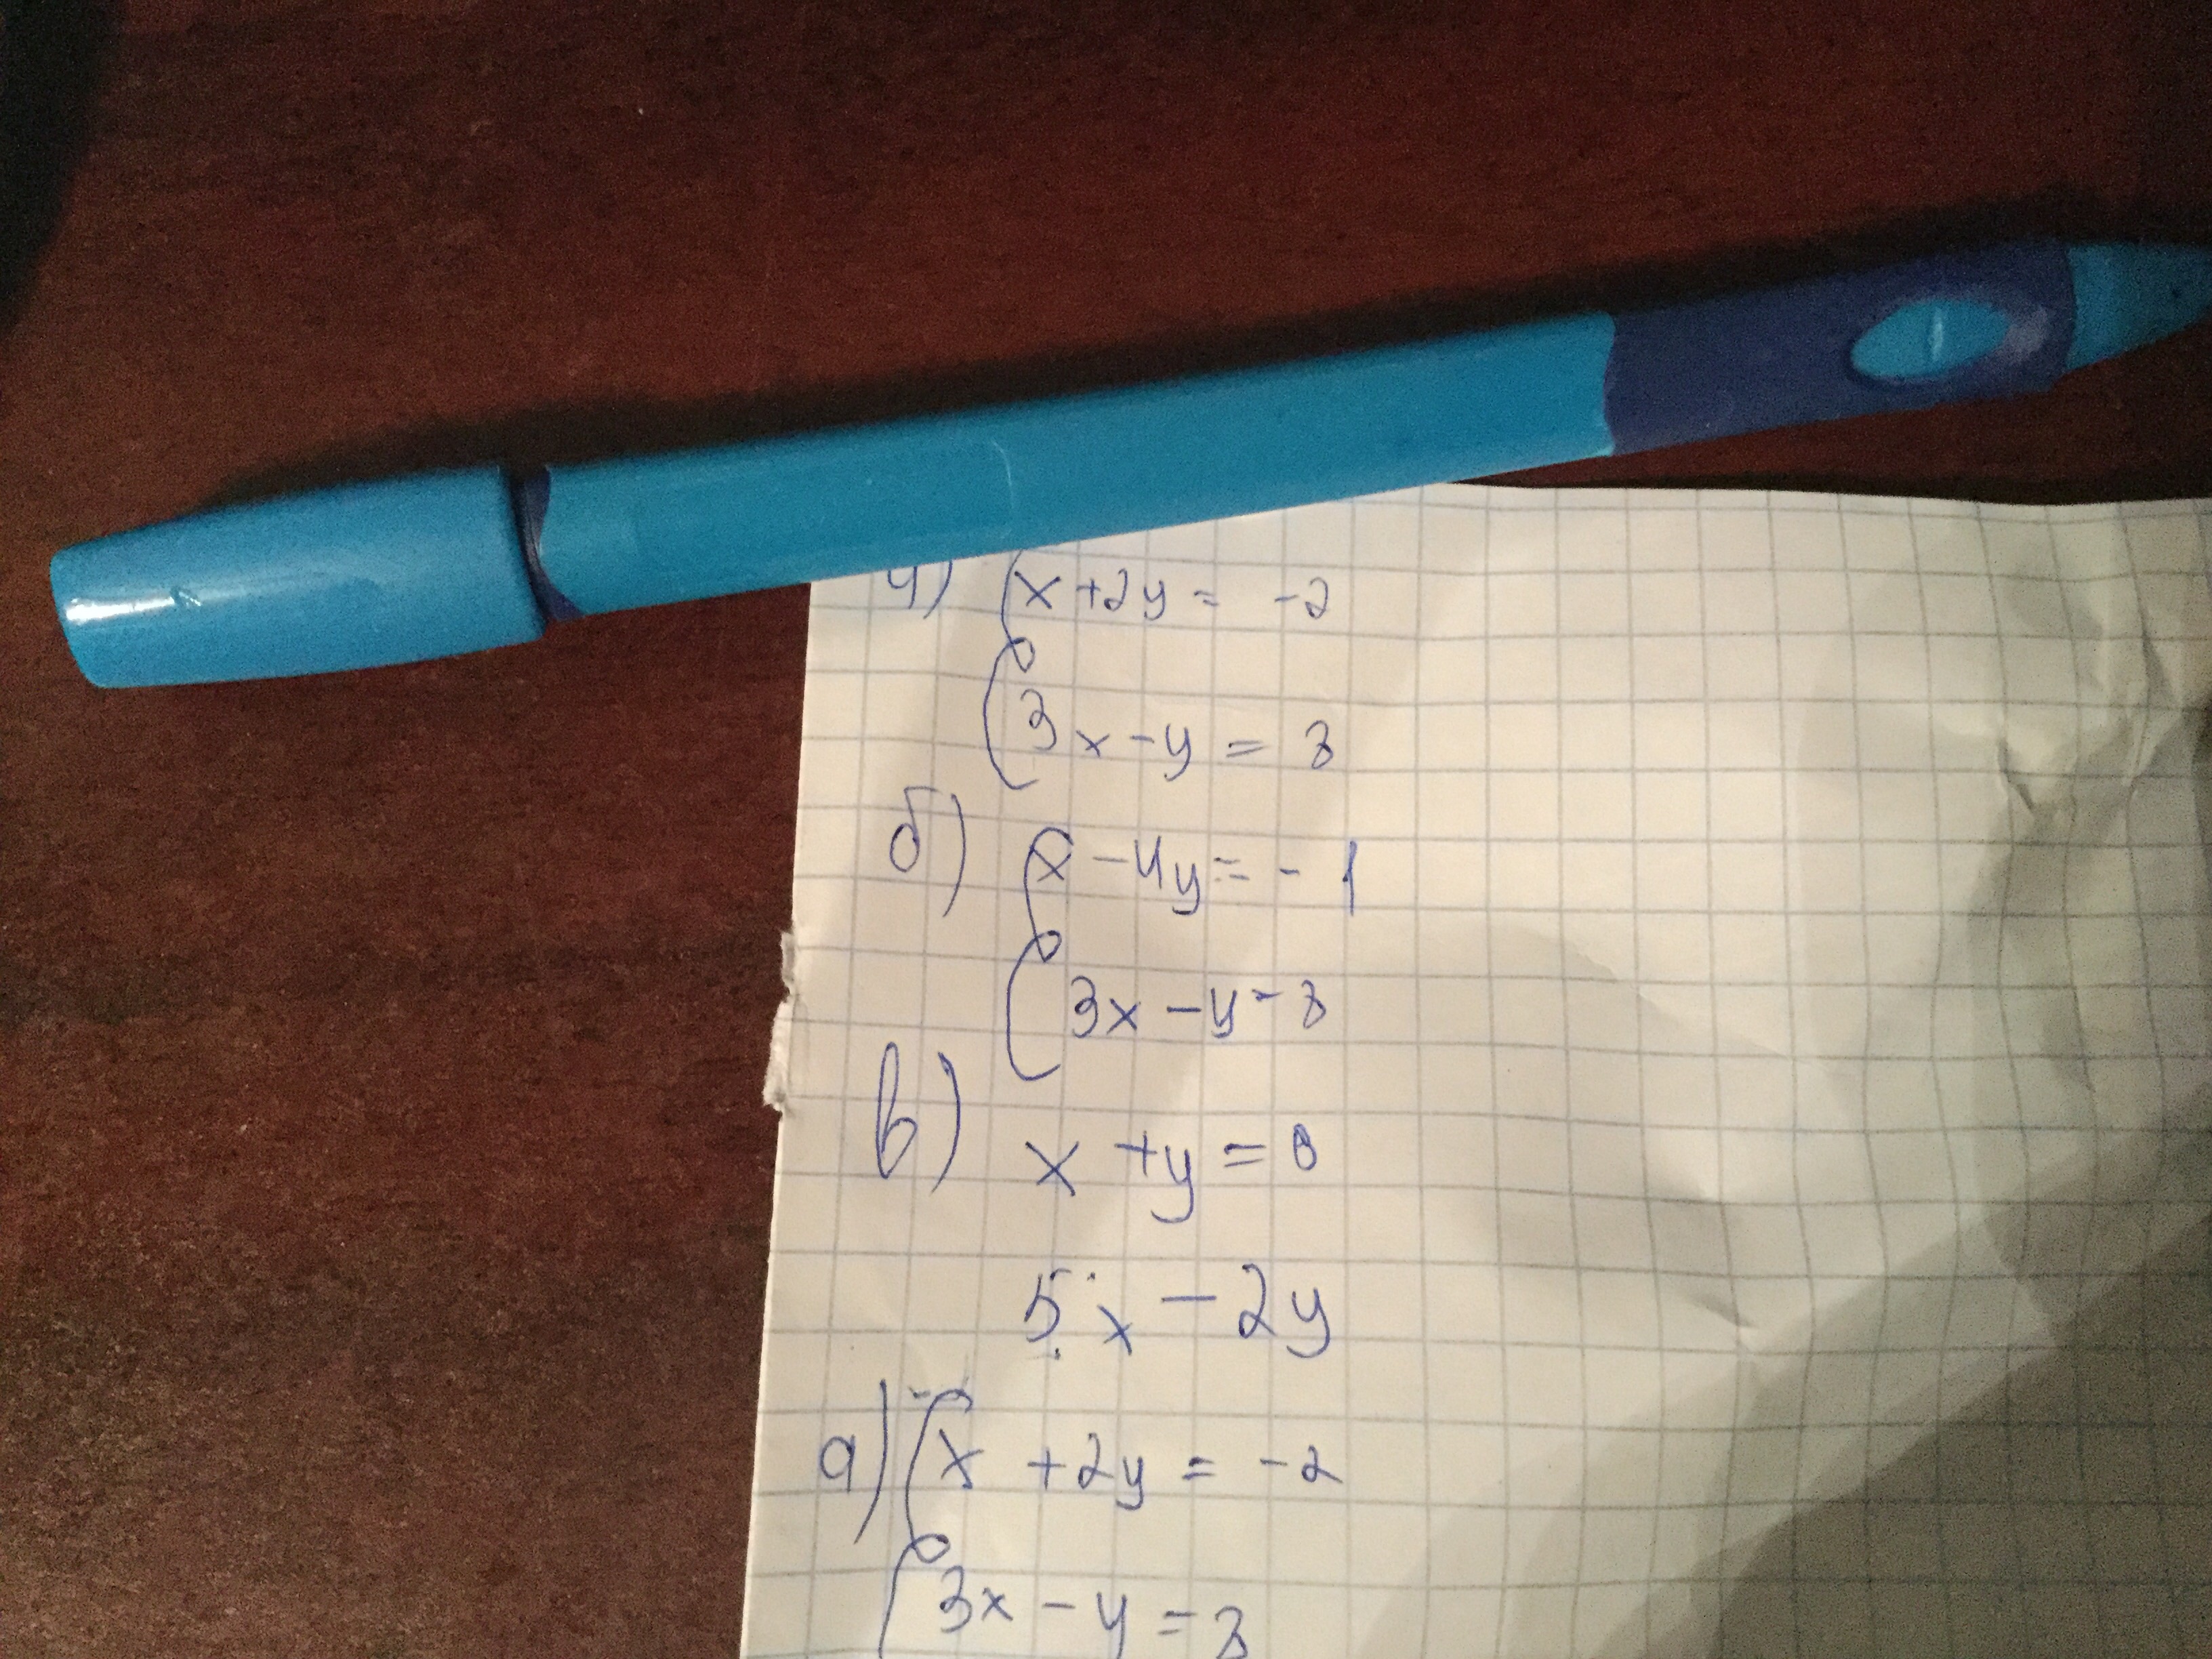 а) x + 2y = -2
3x - y = 8
б) x - 4y = - 1
3x - y = 8
в) x + y = 8
5x - 2y
а) x + 2y = -2
3x - y = 8